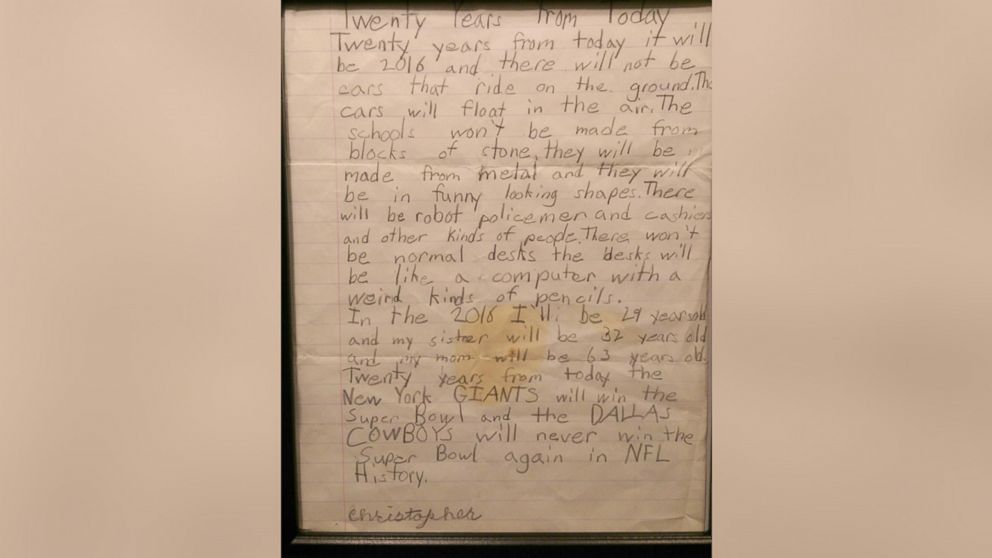 Twenty Years from Today
Twenty years from today it will
be 2016 and there will not be
cars that ride on the ground. The
cars will float in the air. The
schools won't be made from
blocks of stone, they will be
made from metal and they will
be in funny looking shapes. There
will be robot policemen and cashiers
and other kinds of people. There won't
be normal desks the desks will
be like a computer with a
weird kinds of pencils.
In the 2016 I'll be 29 years old
and my sister will be 32 years old
and my mom will be 63 years old.
Twenty years from today the
New York GIANTS will win the
Super Bowl and the DALLAS
COWBOYS will never win the
Super Bowl again in NFL
History.
christopher